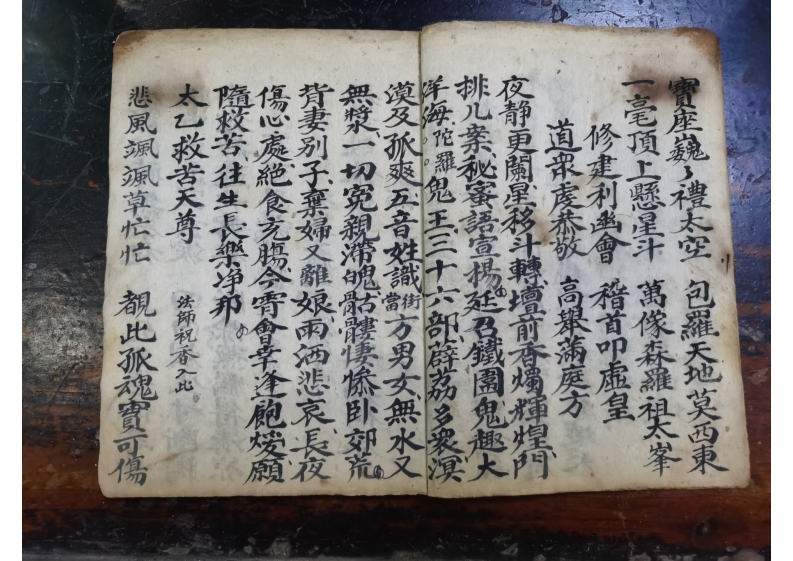 寶座巍々禮太空　包羅天地莫西東
一毫頂上懸星斗　萬像森羅祖太峯
修建利幽會　稽首叩虛皇
道眾虔恭敬　高舉滿庭方
夜静更闌星移斗轉壇前香燭輝煌門
排儿案秘密語宣揚延召鐵圍鬼趣大
洋海陀羅鬼王三十六部薜荔多衆溟
漠及孤爽五音姓識街當方男女無水又
無漿一切冤親滯魄骷髏悽慘卧郊荒
背妻別子棄婦又離娘雨洒悲哀長夜
傷心處絶食充腸今宵會幸逢飽煖願
隨救苦往生長樂净邦
太乙救苦天尊　法師祝香入此
悲風颯颯草忙忙　覩此孤魂寶可傷